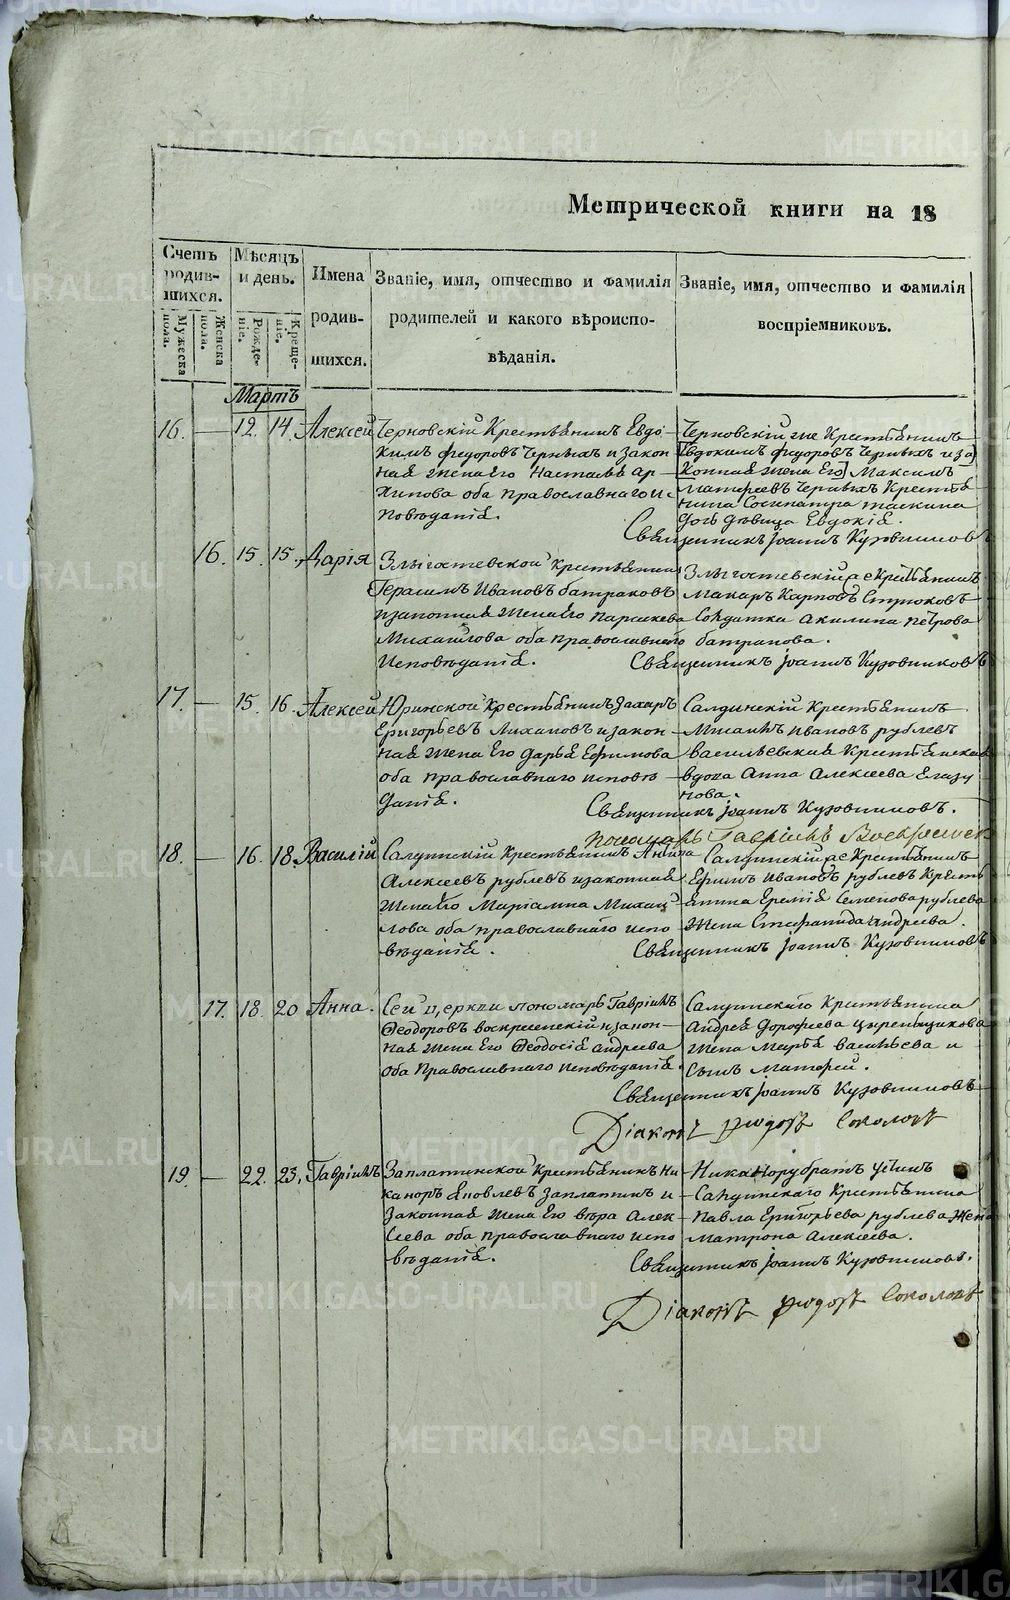 Метрической книги на 18
Счетъ родив-шихся.
Мужеска пола.
Женска пола.
Мѣсяцъ и день.
Рожде-ніе.
Креще-ніе.
Имена родив-шихся.
Званіе, имя, отчество и фамилія
родителей и какого вѣроиспо-
вѣданія.
Званіе, имя, отчество и фамилія
воспріемниковъ.
Мартъ
16. — 12. 14. Алексей
Черновскій Крестьянинъ Евдо-
кимъ федоровъ Черныхъ и закон
ная жена Его Настасья Ар-
хипова оба православнаго и-
поведанія.
Черновскій же Крестьянинъ
Евдокимъ федоровъ Черныхъ и за
конная жена Его Максимъ
Матфеевъ Черныхъ Крестья
нина
дочь девица Евдокія.
Священникъ Іоаннъ Кузовниковъ
16. 15. 15. Дарія
Злыгостевской крестьянинъ
Герасимъ Ивановъ батраковъ
изаконная жена Его Парасковья
Михайлова оба православнаго
Исповеданія.
Злыгостевскій же Крестьянинъ
Макаръ Карповъ
Солдатка Акилина петрова
батракова.
Священникъ Іоаннъ Кузовниковъ
17. — 15. 16. Алексей
Юринской крестьянинъ Захаръ
Григорьевъ Лихановъ изакон-
ная жена Его Дарья Ефимова
оба православнаго исповѣ
данія.
Салдинскій Крестьянинъ
Ивановъ рублевъ
васильевская Крестьянская
вдова Анна Алексеева
Священникъ Іоаннъ Кузовниковъ.
пономарь Гавріилъ Воскресенск
18. — 16. 18. Василій
Салдинскій Крестьянинъ
Алексеевъ рублевъ изаконная
жена Его Маріамна Михай
лова оба православнаго испо
веданія.
Салдинскій же Крестьянинъ
Ефимъ Ивановъ рублевъ Кресть
янина Еремія Семенова рублева
жена Стефанида андреева.
Священникъ Іоаннъ Кузовниковъ
17. 18. 20 Анна.
Сей церкви пономарь Гавріилъ
Феодоровъ воскресенскій изакон-
ная жена Его Феодосія андреева
оба Православнаго исповѣданія.
Салдинскаго крестьянина
Андрея Дорофеева Циренщикова
жена Марья васильева и
сынъ Матфей.
Священникъ Іоаннъ Кузовниковъ
Діаконъ Соколовъ
19. — 22. 23. Гавріилъ
Заплатинской крестьянинъ Ни
каноръ яковлевъ Заплатинъ и
Законная жена Его вѣра Алек
сеева оба православнаго испо
веданія.
Салдинскаго Крестьянина
Павла Григорьева рублева жена
матрона Алексеева.
Священникъ Іоаннъ Кузовниковъ.
Діаконъ Соколовъ
METRIKI.GASO-URAL.RU